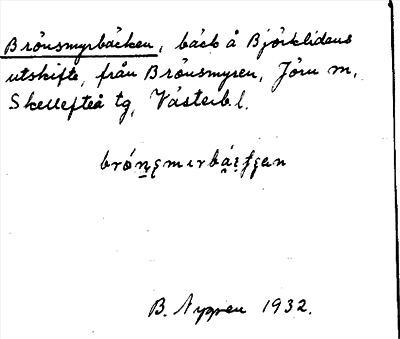 Brönsmyrbäcken, bäck å Björklidens
utskifte, från Brönsmyren, Jörn m,
Skellefteå tg, Västerb l.
B. Nygren 1932.